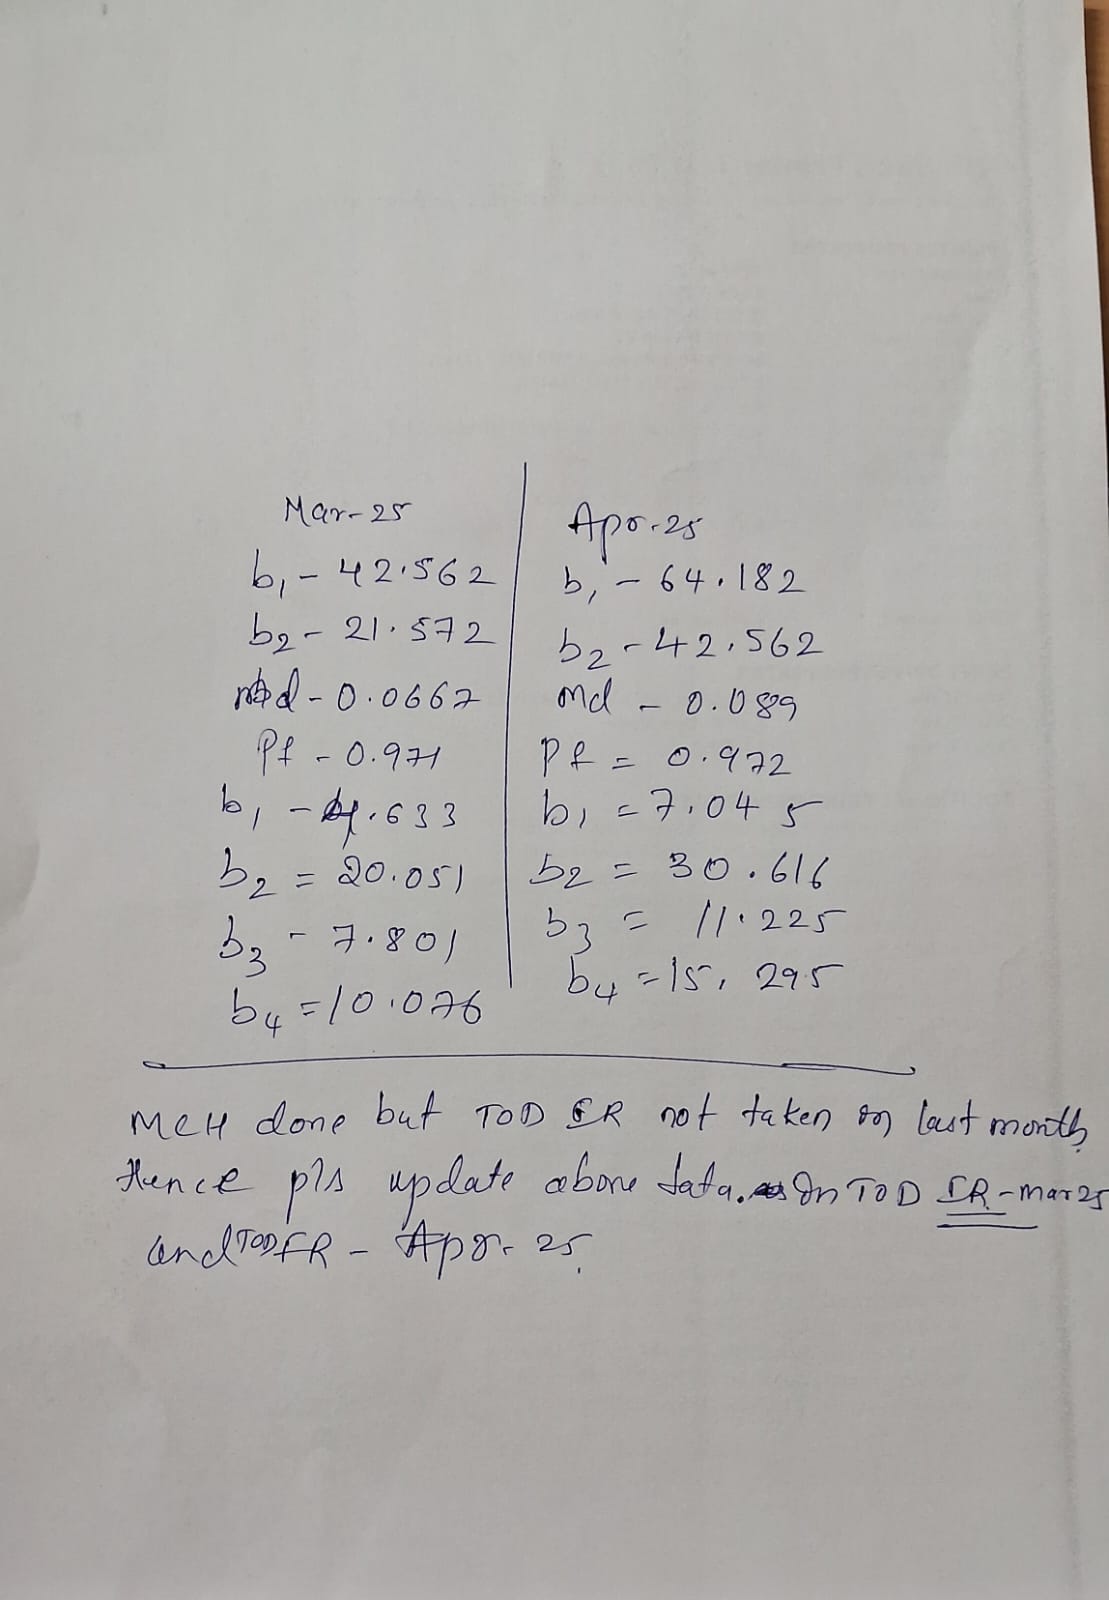 Mar-25
b1 - 42.562
b2 - 21.572
md - 0.0667
Pf - 0.971
b1 - 4.633
b2 = 20.051
b3 - 7.801
b4 = 10.076
Apr-25
b1 - 64.182
b2 - 42.562
md - 0.089
Pf = 0.972
b1 = 7.045
b2 = 30.616
b3 = 11.225
b4 = 15.295
MCH done but TOD IR not taken on last month
Hence pls update above data. In TOD IR - mar 25
and TOD FR - Apr. 25.